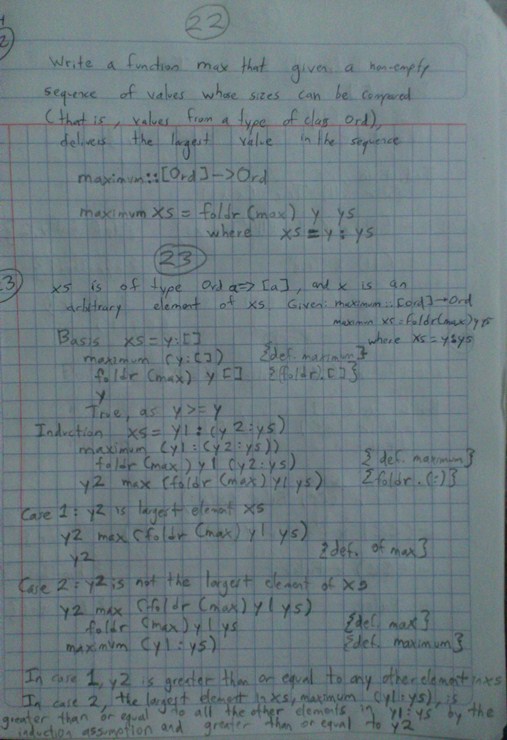 22
2
Write a function max that given a non-empty
sequence of values whose sizes can be compared
(that is, values from a type of class Ord),
delivers the largest value in the sequence
maximum::[Ord]->Ord
maximum xs = foldr (max) y ys
where xs = y:ys
23
3
xs is of type Ord a=> [a], and x is an
arbitrary element of xs Given: maximum::[Ord]->Ord
maximum xs = foldr(max) y ys
Basis xs = y:[] where xs = y:ys
maximum (y:[]) {def. maximum}
foldr (max) y [] {(foldr).[]}
y
True, as y >= y
Induction xs = y1:(y2:ys)
maximum (y1:(y2:ys))
foldr (max) y1 (y2:ys) {def. maximum}
y2 max (foldr (max) y1 ys) {foldr.(:)}
Case 1: y2 is largest element xs
y2 max (foldr (max) y1 ys)
y2 {def. of max}
Case 2: y2 is not the largest element of xs
y2 max (foldr (max) y1 ys)
foldr (max) y1 ys {def. max}
maximum (y1:ys) {def. maximum}
In case 1, y2 is greater than or equal to any other element in xs
In case 2, the largest element in xs, maximum (y1:ys), is
greater than or equal to all the other elements in y1:ys by the
induction assumption and greater than or equal to y2